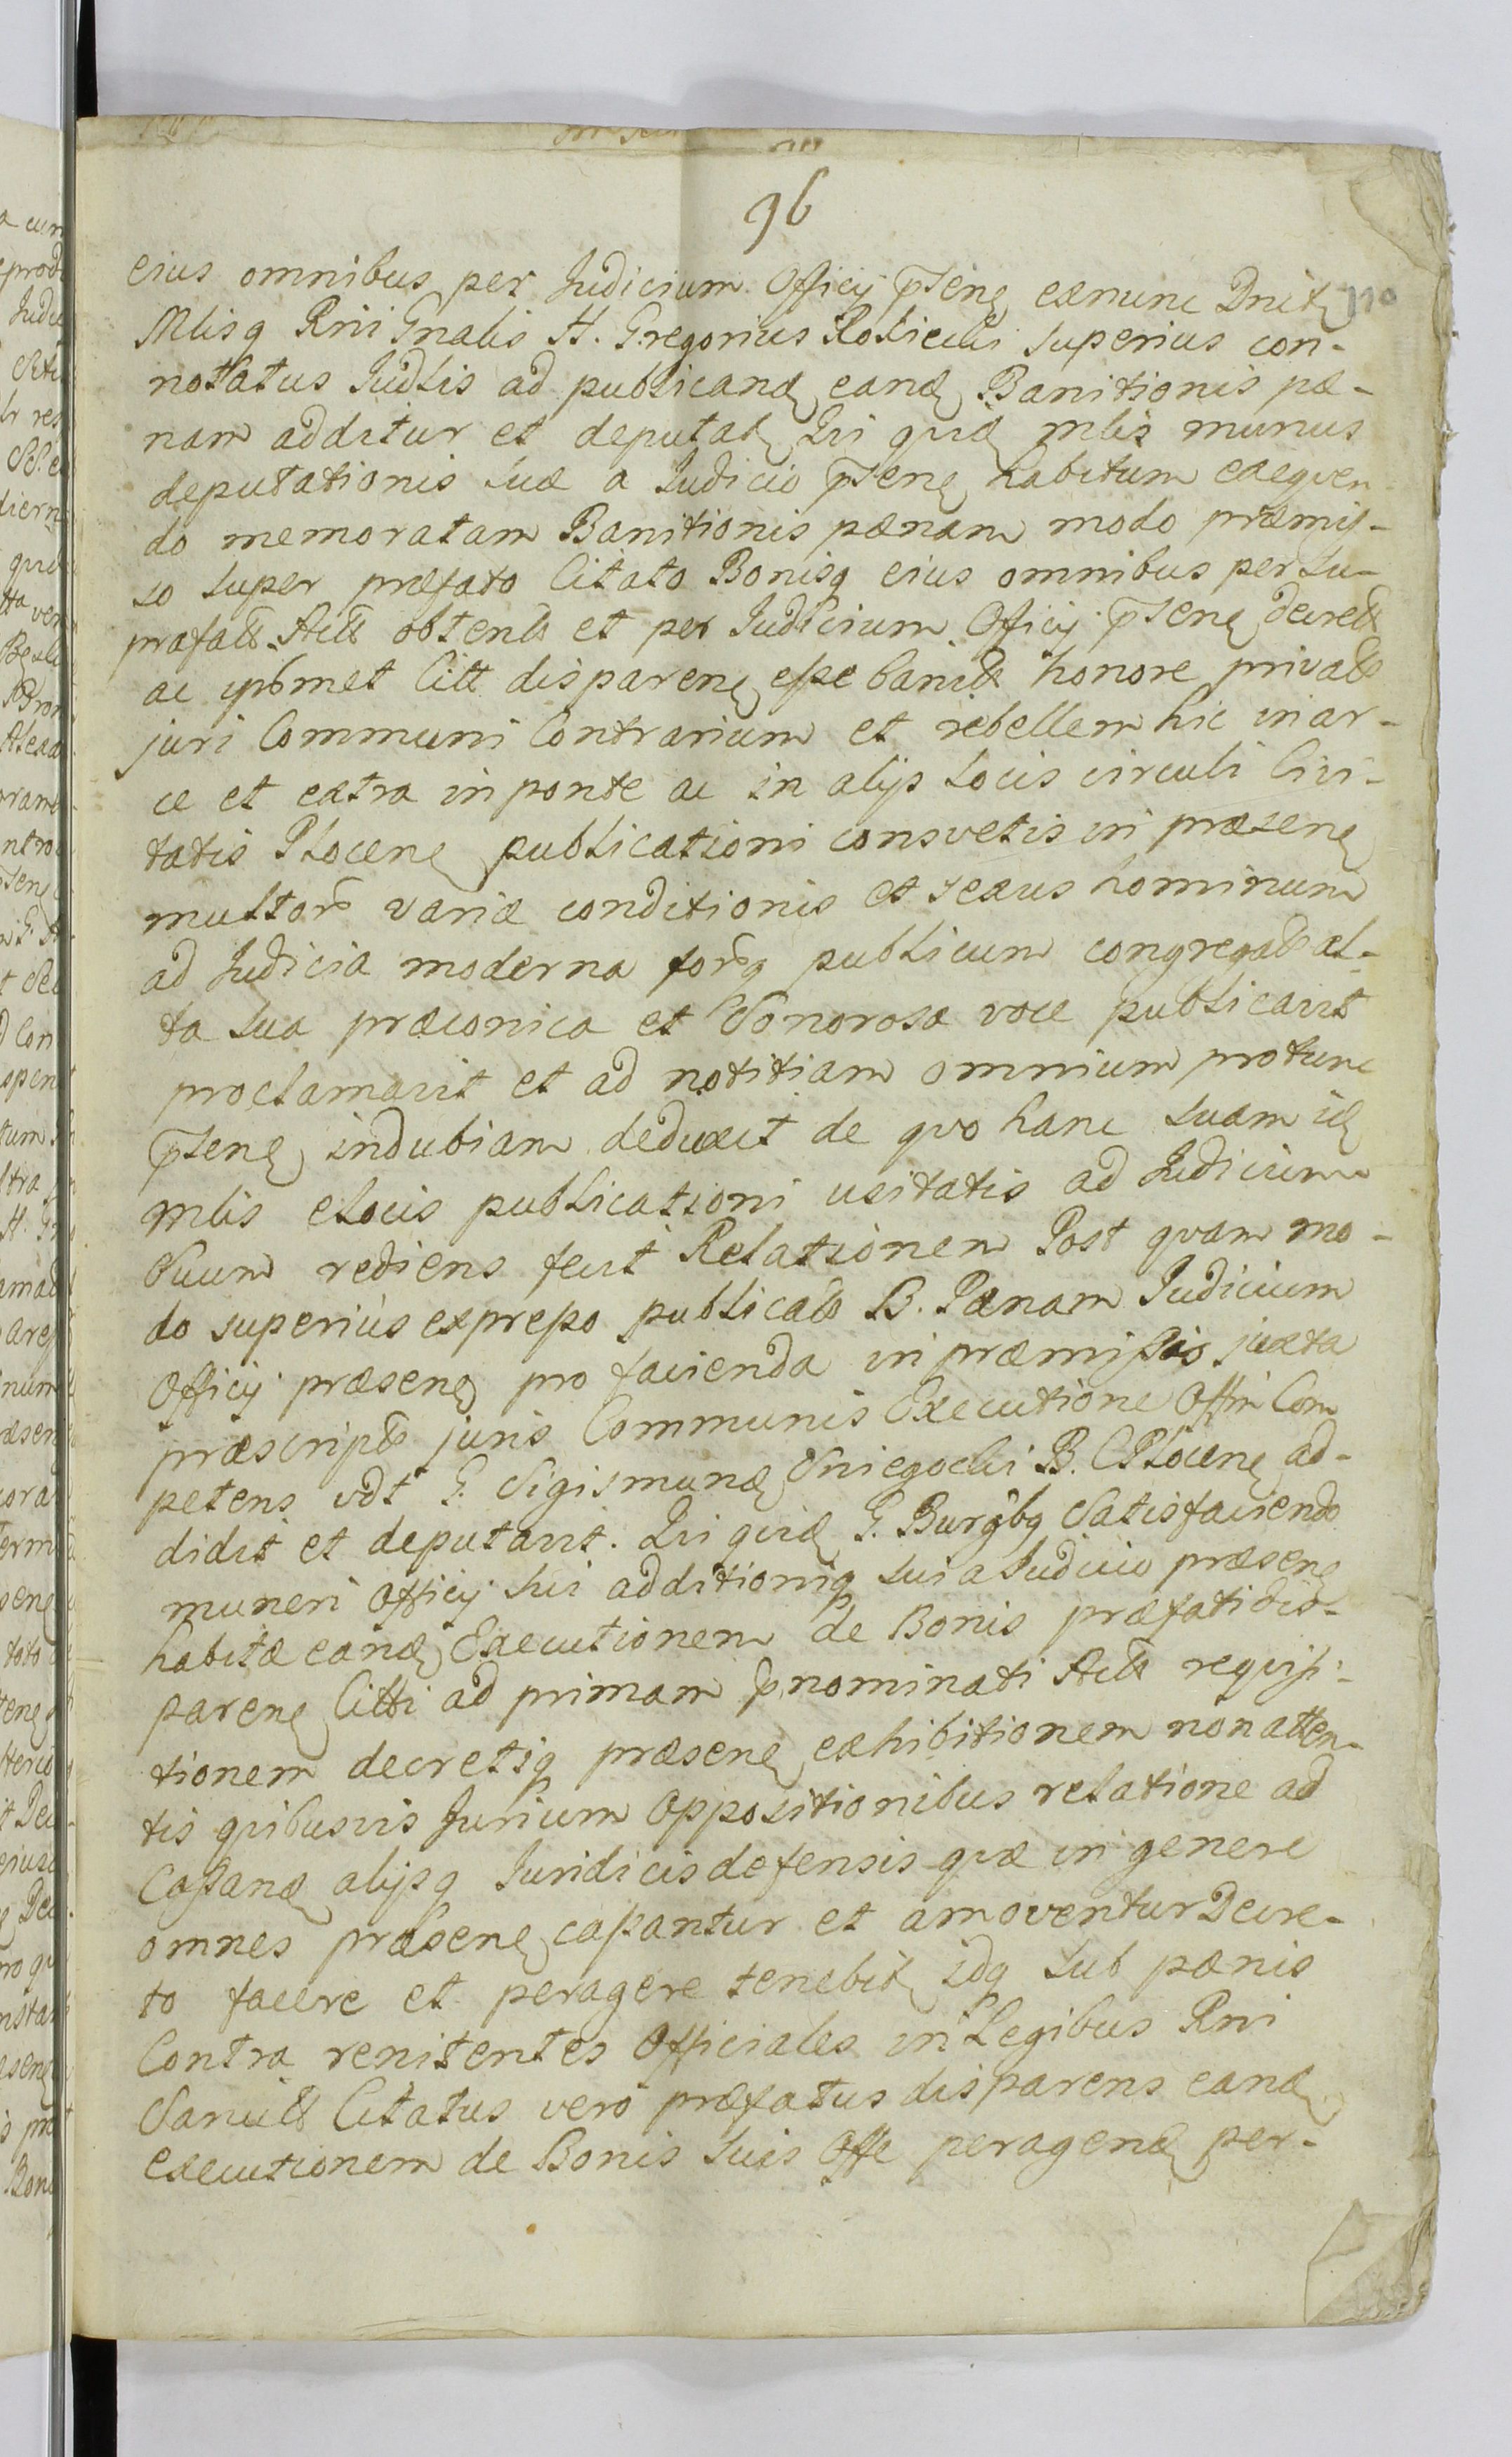 96
110
eius omnibus per Judicium Officij pſenę exnunc Dnitę
Mlisq Rni Gnalis H. Gregorius superius con-
notatus Judlis ad publicandę eandę Banitionis pæ-
nam additur et deputatę Qui quidę mlis munus
deputationis suæ a Judicio pſenę habitum exeqven
do memoratam Banitionis pænam modo præmis-
so super præfato Citato Bonisq eius omnibus per su-
præfatt Actt obtentt et per Judicium Officij pſenę decrett
ac ipsmet Citt disparenę esse banitt honore privatt
juri Communi Contrarium et rebellem hic in ar-
ce et extra in ponte ac in alijs locis circuli Civi-
tatis Plocenę publicationi consvetis in præsenę
multor variæ conditionis et sexus hominum
ad Judicia moderna forq publicum congregatt al-
ta sua præconica et Sonorosa voce publicavit
proclamavit et ad notitiam omnium protunc
pſenę indubiam deduxit de qvo hanc suam idę
mlis elocis publicationi usitatis ad Judicium
Suum rediens fecit Relationem Post qvam mo-
do superius expresso publicatt B. Pænam Judicium
Officij præsenę pro facienda in præmissis juxta
præscriptt juris Communis Executione Offm Com
petens vdt G. Sigismundę Sniegocki B. C Plocenę ad-
didit et deputavit. Qui quidę G. Burgbg Satisfaciendo
muneri Officij sui additioniq sui a Judicio præsenę
habitæ eandę Executionem de Bonis præfati dis-
parenę Citti ad primam pnominati Actt reqvisi-
tionem decretiq præsenę exhibitionem non atten-
tis qvibusvis Jurium Oppositionibus relatione ad
Cassandę alijsq Juridicis defensis qvæ in genere
omnes præsenę cassantur et amoventur Decre-
to facere et peragere tenebitę idq sub pænis
Contra renitentes Officiales in Legibus Rni
Sancitt Citatus vero præfatus disparens eandę
executionem de Bonis suis Offe peragendę per-